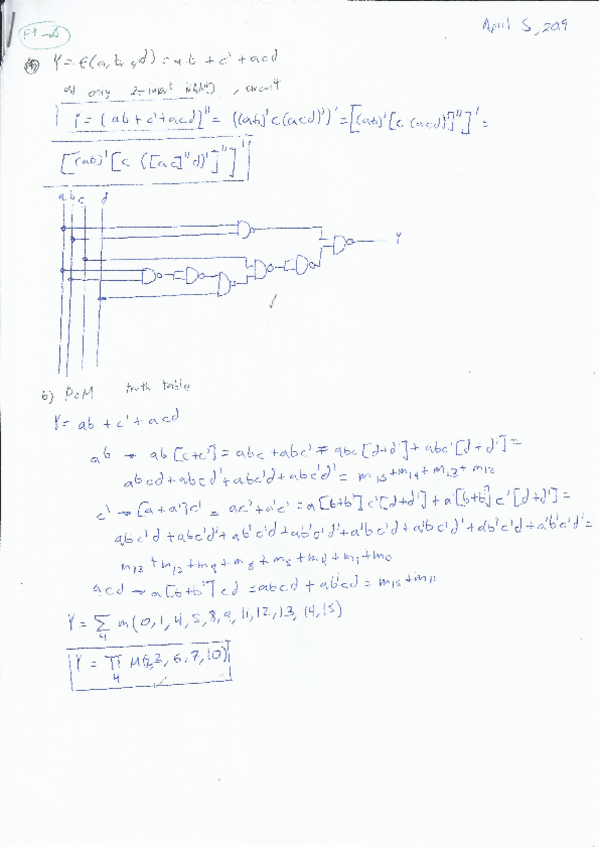 April 5, 2019
F1-A
a) Y = f(a,b,c,d) = ab + c' + acd
a) only 2-input NAND, circuit
Y = (ab + c' + acd)'' = ((ab)' c (acd)')' = [(ab)' [c (acd)']'']' =
[(ab)' [c ([ac]''d)']'']'
a b c d
Y
b) PoM truth table
Y = ab + c' + acd
ab → ab[c+c'] = abc + abc' = abc[d+d'] + abc'[d+d'] =
abcd + abcd' + abc'd + abc'd' = m15 + m14 + m13 + m12
c' → [a+a']c' = ac' + a'c' = a[b+b']c'[d+d'] + a'[b+b']c'[d+d'] =
abc'd + abc'd' + ab'c'd + ab'c'd' + a'bc'd + a'bc'd' + a'b'c'd + a'b'c'd' =
m13 + m12 + m9 + m8 + m5 + m4 + m1 + m0
acd → a[b+b']cd = abcd + ab'cd = m15 + m11
Y = ∑4 m(0,1,4,5,8,9,11,12,13,14,15)
Y = ∏4 M(2,3,6,7,10)